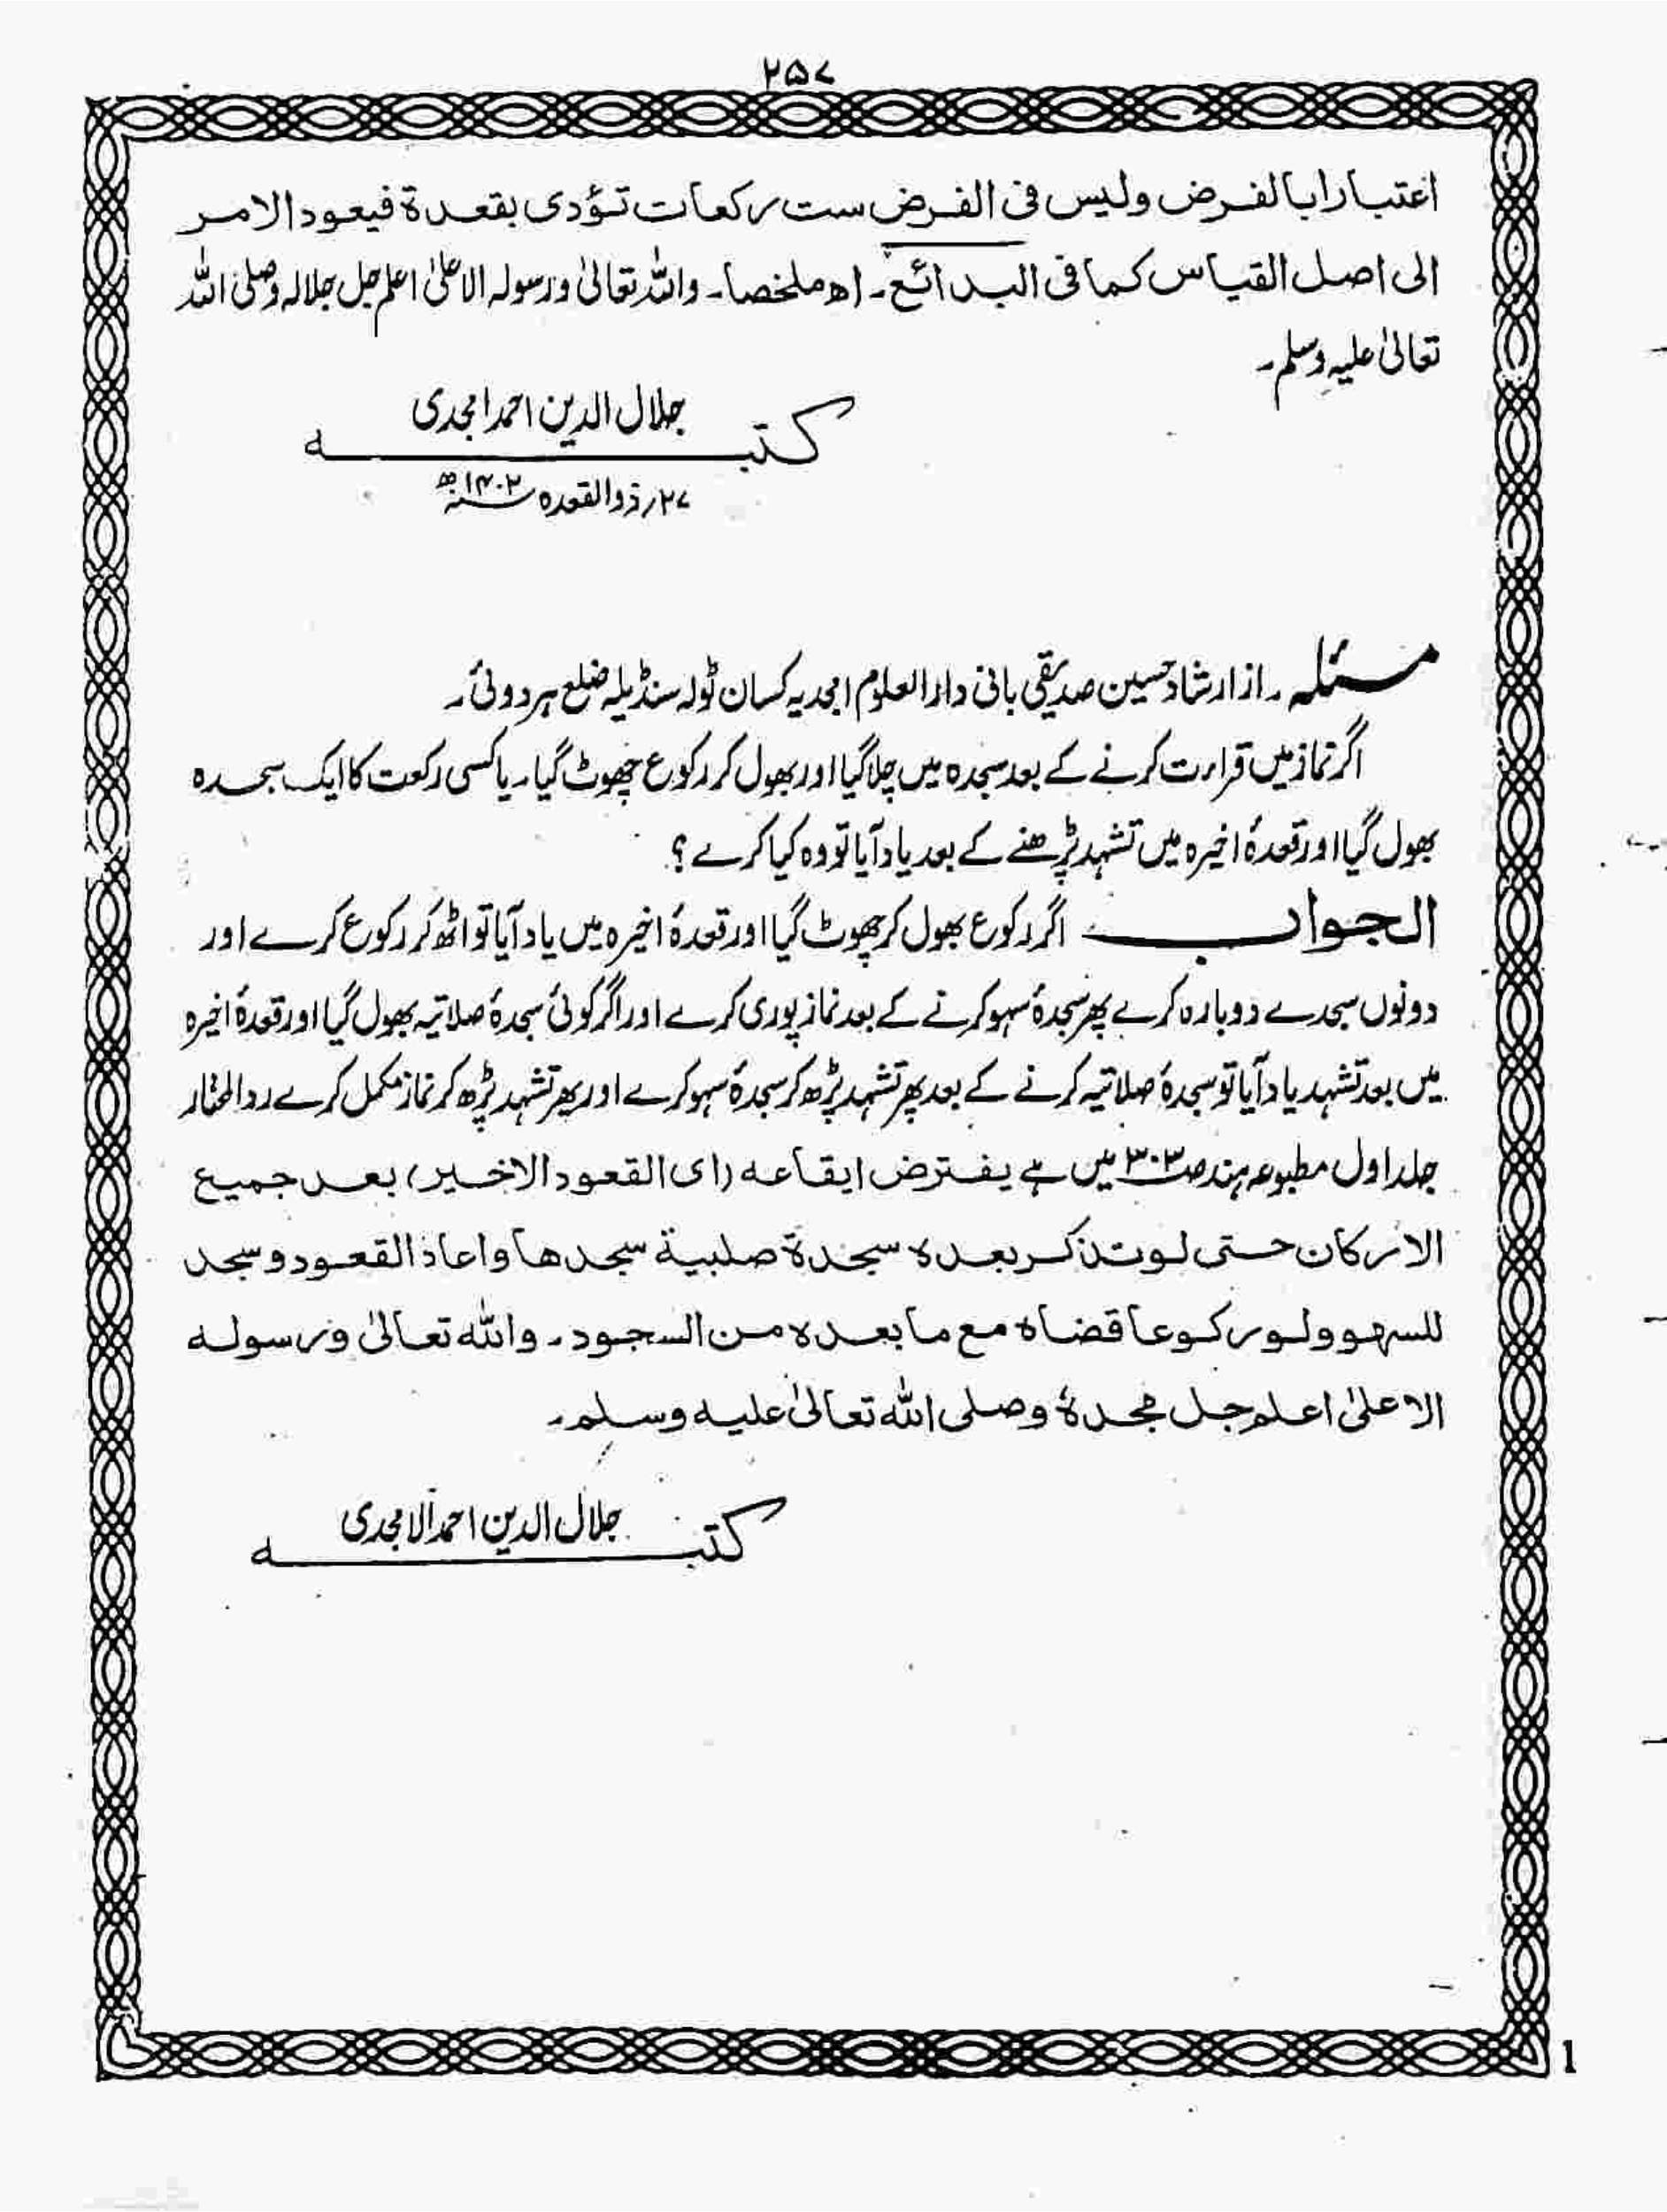 ۲۵۷
اعتبارا بالفرض وليس فى الفرض ست ركعات تؤدى بقعدة فيعود الامر
الى اصل القياس كما فى البدائع۔ اھ ملخصا۔ واللہ تعالیٰ ورسولہ الاعلیٰ اعلم جل جلالہ وصلی اللہ
تعالیٰ علیہ وسلم۔
کتبہ جلال الدین احمد امجدی
۲۷؍ ذوالقعدہ ۱۴۰۲ھ
مسئلہ ۔ از ارشاد حسین صدیقی بانی دارالعلوم امجدیہ کسان ٹولہ سنڈیلہ ضلع ہردوئی۔
اگر نماز میں قراءت کرنے کے بعد سجدہ میں چلا گیا اور بھول کر رکوع چھوٹ گیا۔ یا کسی رکعت کا ایک سجدہ
بھول گیا اور قعدۂ اخیرہ میں تشہد پڑھنے کے بعد یاد آیا تو وہ کیا کرے؟
الجواب اگر رکوع بھول کر چھوٹ گیا اور قعدۂ اخیرہ میں یاد آیا تو اٹھ کر رکوع کرے اور
دونوں سجدے دوبارہ کرے پھر سجدۂ سہو کرنے کے بعد نماز پوری کرے اور اگر کوئی سجدۂ صلاتیہ بھول گیا اور قعدۂ اخیرہ
میں بعد تشہد یاد آیا تو سجدۂ صلاتیہ کرنے کے بعد پھر تشہد پڑھ کر سجدۂ سہو کرے اور پھر تشہد پڑھ کر نماز مکمل کرے ردالمحتار
جلد اول مطبوعہ ہند ص۳۰۳ میں ہے يفترض ايقاعه (اى القعود الاخير) بعد جميع
الاركان حتى لو تذكر بعده سجدة صلبية سجدها واعاد القعود وسجد
للسهو ولو ركوعا قضاه مع ما بعده من السجود۔ والله تعالىٰ ورسوله
الاعلىٰ اعلم جل مجدهٗ وصلى الله تعالىٰ عليه وسلم۔
کتبہ جلال الدین احمد الامجدی
1